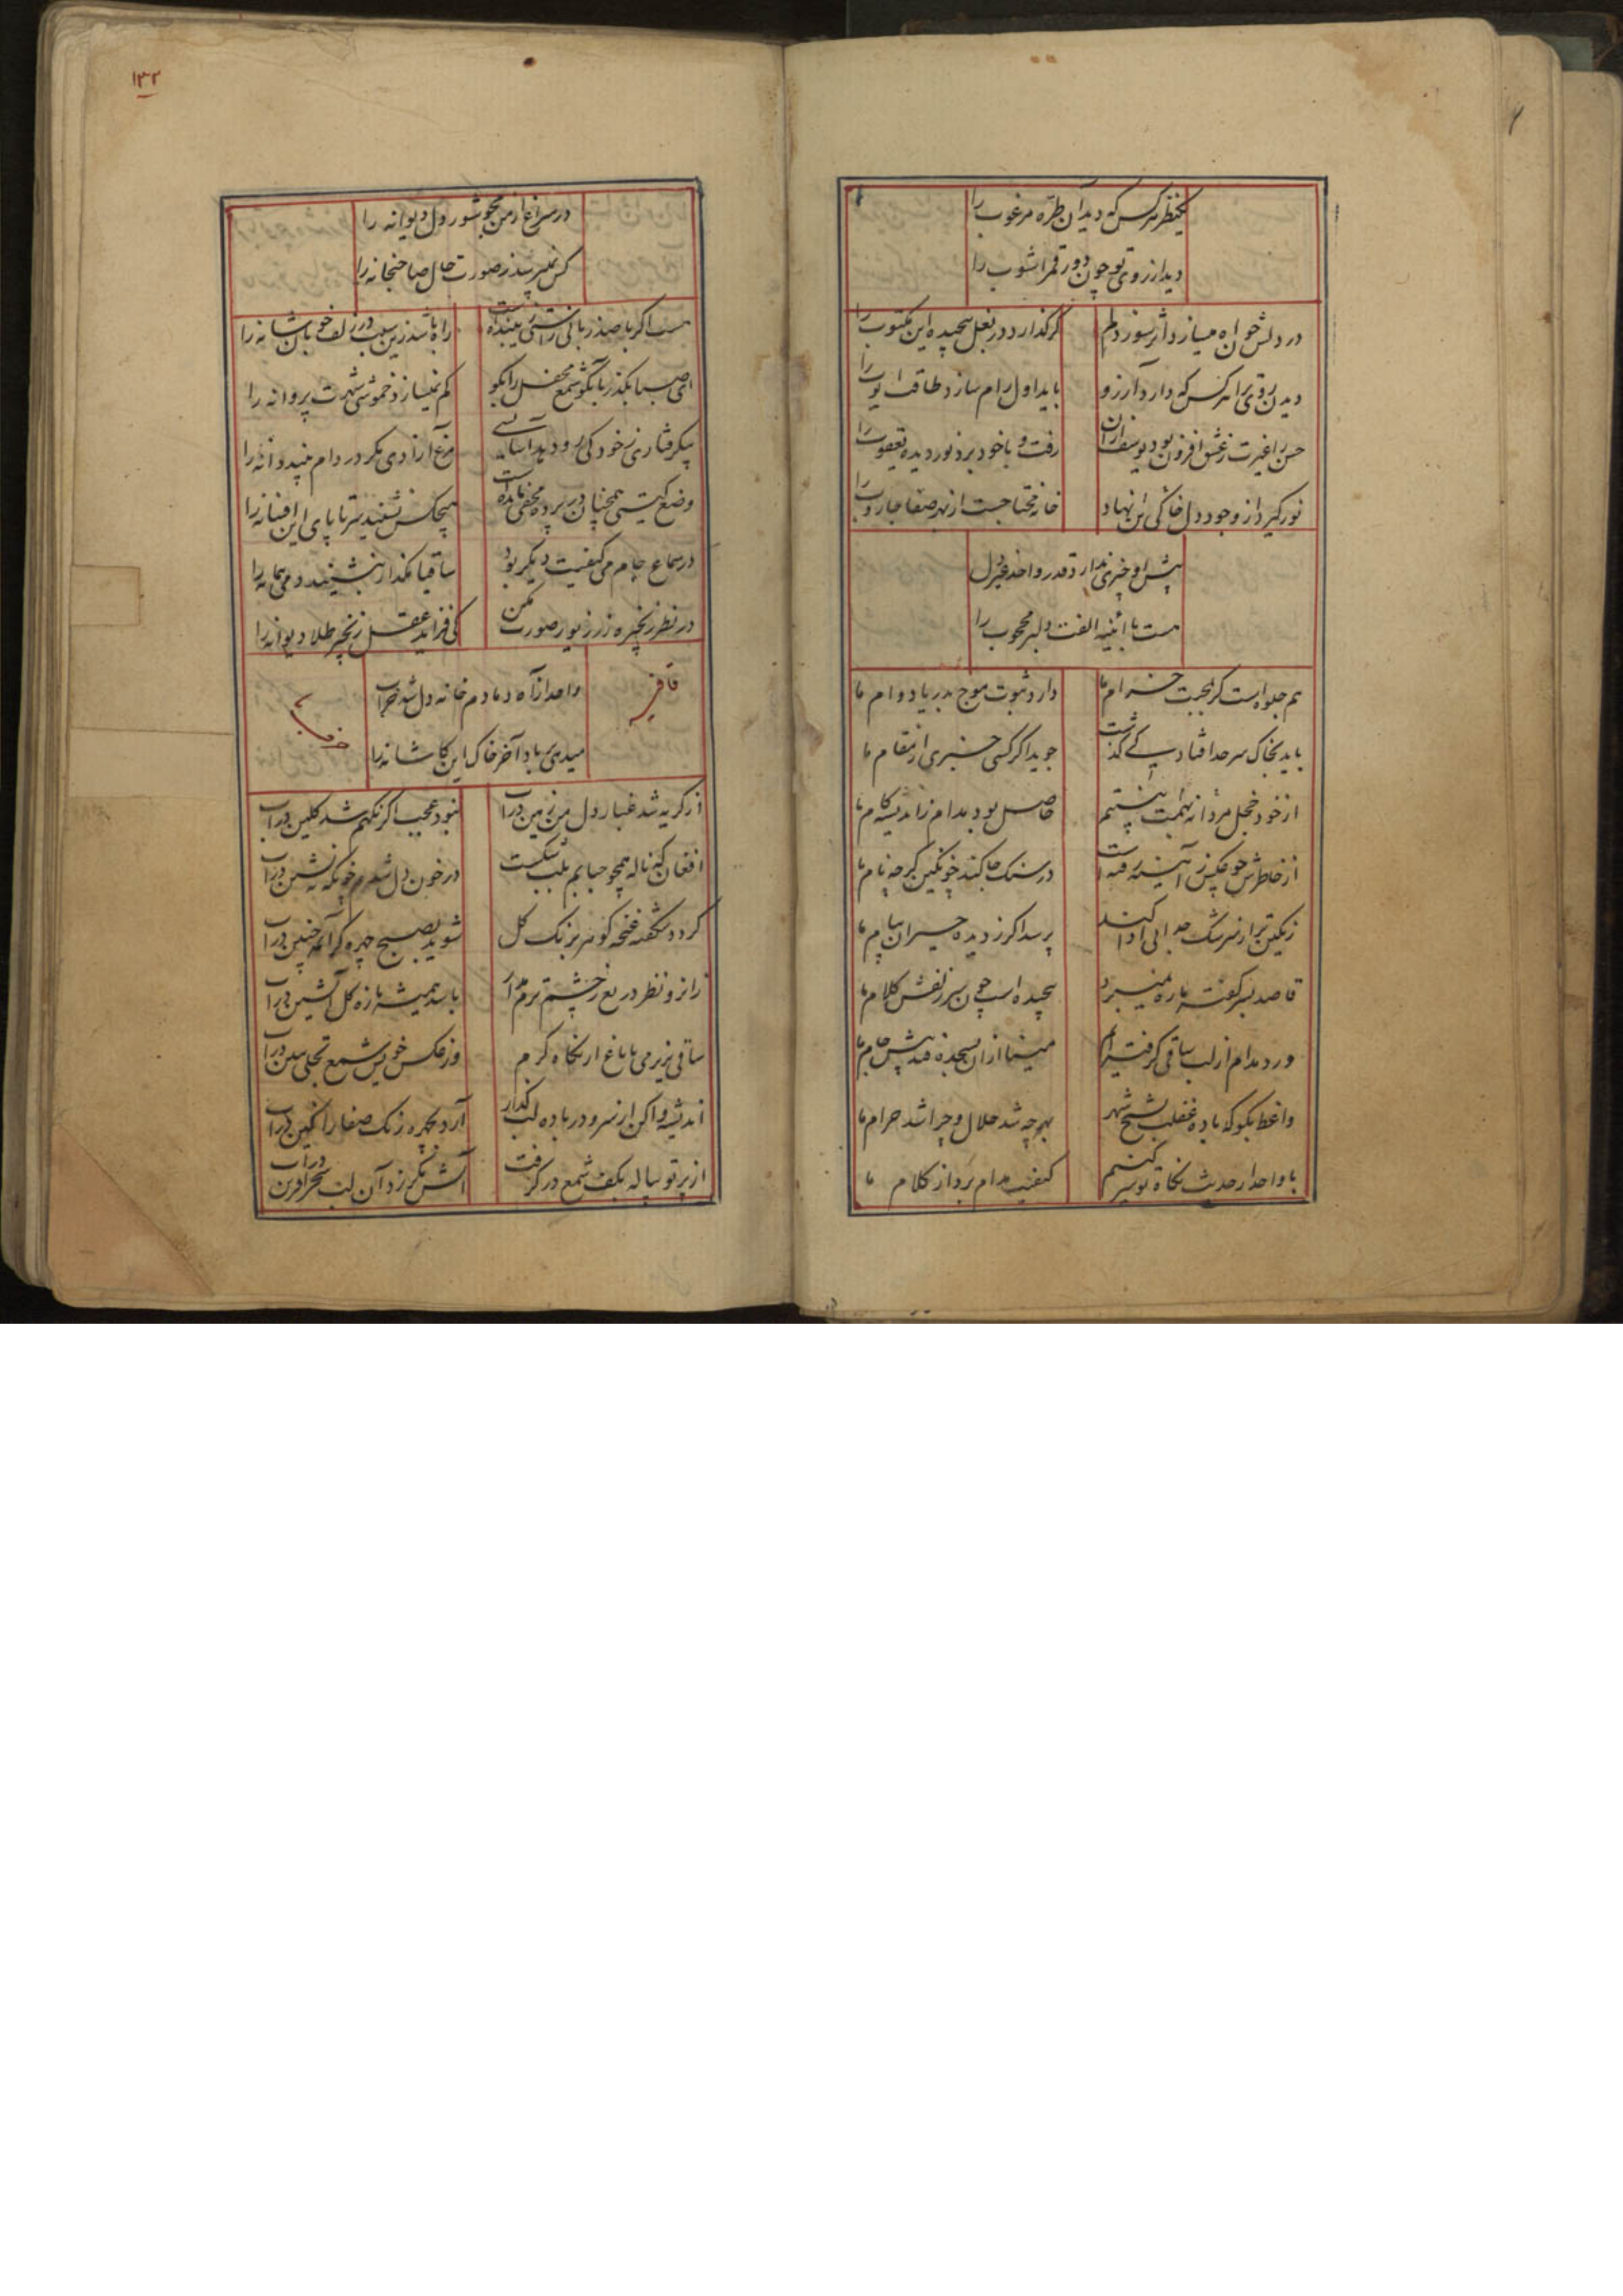 یکنظر هر کس که دید آن طره مرغوب را
دید از روی تو چون دور قمر آشوب را
در دلش خواه میسازد اثر سوز دلم
گر گذارد در بغل پیچیده این مکتوب را
دیدن روی ترا هر کس که دارد آرزو
باید اول رام سازد طاقت ایوب را
حسن را غیرت ز عشق افزون بود یوسف از آن
رفت و با خود برد نور دیده یعقوب را
نور گیرد از وجود دل خاکی نهاد
خانه محتاجست از بهر صفا جاروب را
پیش او چیزی ندارد قدر واحد غیر دل
هست با آئینه الفت دلبر محبوب را
هم جلوه است گر بحبت خرام ما
دارد ثبوت موج بدریا دوام ما
باید بخاک سر حد افتاد کی گذشت
جوید اگر کسی خبری از مقام ما
از خود خجل مردانه همت نیستیم
حاصل بود مدام ز اندیشه کام ما
از خاطرش چو عکس ز آئینه رفته است
در سنگ جا کند چو نگین گر چه نام ما
رنگین تر از سرشک جدایی ادا کند
پرسد اگر ز دیده حیران پیام ما
قاصد بسر گوشه باره نمیبرد
پیچیده است چون سر زلفش کلام ما
ورد مدام از لب ساقی گرفته ایم
مینا از آن بسجده فتد پیش جام ما
واعظ بگو که باده غفلت بشیخ شهر
بهر چه شد حلال و چرا شد حرام ما
با واحد از حدیث نگاه تو سر کنیم
کیفیت مدام برد از کلام ما
۱۳۲
در سراغ از من مجو شور دل دیوانه را
کس نمیپرسد ز صورت حال صاحبخانه را
هست اگر با صد زبانی راستی زیبنده است
راه باشد زین سبب در زلف خوبان شانه را
ای صبا بگذر بگو شمع محفل را بگو
کم نمیسازد خموشی شهرت پروانه را
بیگرفتاری ز خود کی رو دهد آسایشی
مرغ آزادی مگر در دام چیند دانه را
وضع گیتی همچنان در پرده مخفی مانده است
هیچکس نشنید سر تا پای این افسانه را
در سماع جام می کیفیت دیگر بود
ساقیا مگذار بنشیند دمی پیمانه را
در نظر زنجیره زر زیور صورت مکن
کی فزاید عقل زنجیر طلا دیوانه را
قافیه
واحد از آه دمادم خانه دل شد خراب
میدهی بر باد آخر خاک این کاشانه را
از گریه شد غبار دل من زمین در آب
نبود عجب اگر نگهم شد گلین در آب
افغان که ناله همچو حبابم بلب شکست
در خون دل شدم چو نگه ته نشین در آب
گردد شگفته غنچه گوهر برنگ گل
شوید بصبح چهره گر آن مه جبین در آب
زانرو نظر دریغ ز چشم ترم مدار
باشد همیشه تازه گل آتشین در آب
ساقی نزیر می باباغ از نگاه گرم
وز عکس خویش شمع تجلی ببین در آب
اندیشه وا کن از سر و در باده لب گذار
آرد بچهره رنگ صفا را نگین در آب
از پرتو پیاله بکف شمع در گرفت
آتش نگر زد آن لب سحر آفرین در آب